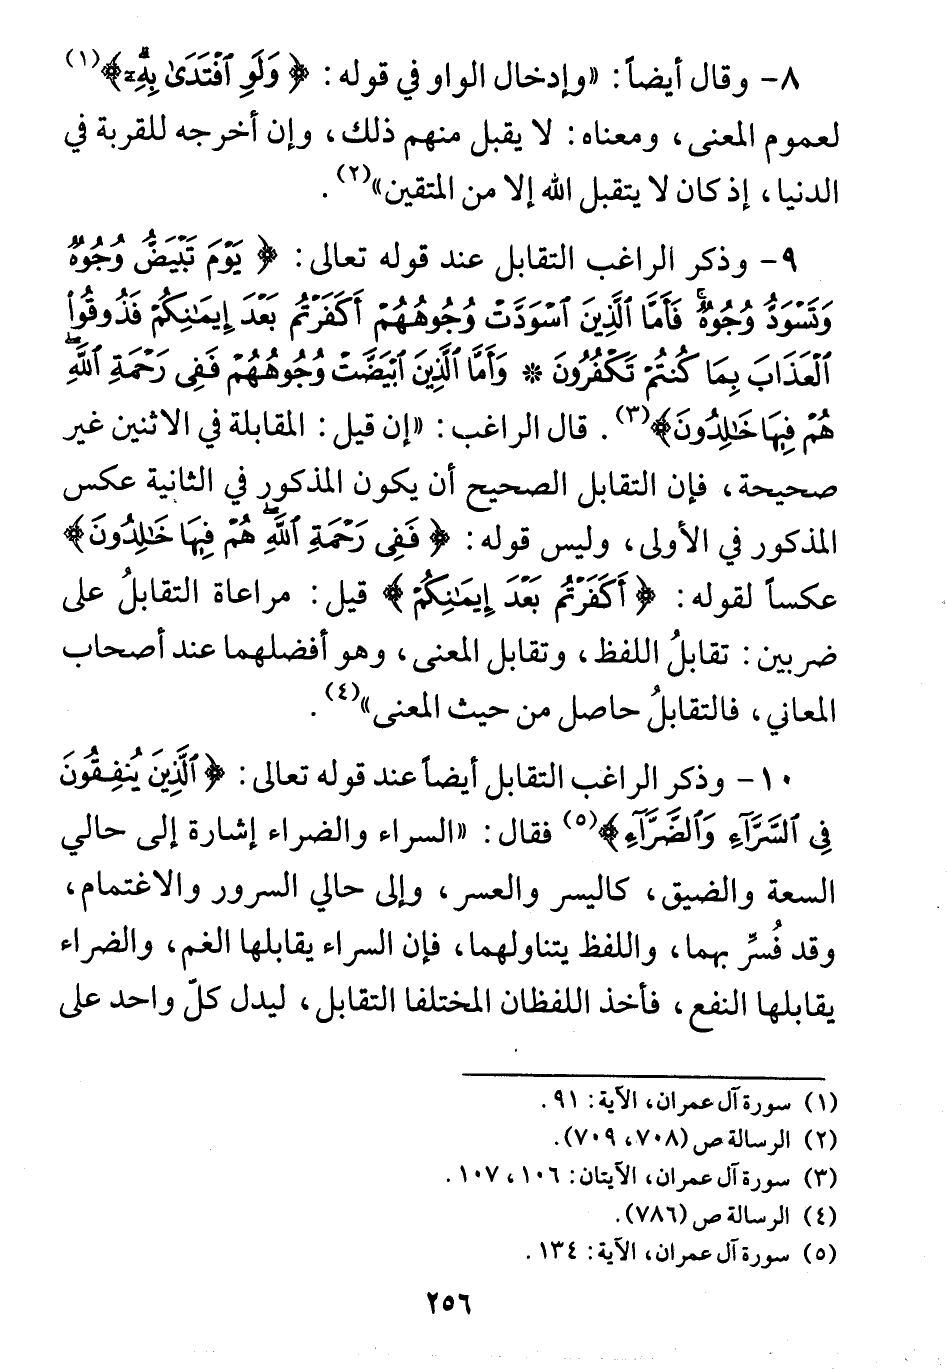 ٨- وقال أيضاً: «وإدخال الواو في قوله: ﴿وَلَوِ ٱفْتَدَىٰ بِهِۦٓ﴾(١)
لعموم المعنى، ومعناه: لا يقبل منهم ذلك، وإن أخرجه للقربة في
الدنيا، إذ كان لا يتقبل الله إلا من المتقين»(٢).
٩- وذكر الراغب التقابل عند قوله تعالى: ﴿يَوْمَ تَبْيَضُّ وُجُوهٌ
وَتَسْوَدُّ وُجُوهٌ ۚ فَأَمَّا ٱلَّذِينَ ٱسْوَدَّتْ وُجُوهُهُمْ أَكَفَرْتُم بَعْدَ إِيمَـٰنِكُمْ فَذُوقُوا۟
ٱلْعَذَابَ بِمَا كُنتُمْ تَكْفُرُونَ * وَأَمَّا ٱلَّذِينَ ٱبْيَضَّتْ وُجُوهُهُمْ فَفِى رَحْمَةِ ٱللَّهِ ۖ
هُمْ فِيهَا خَـٰلِدُونَ﴾(٣). قال الراغب: «إن قيل: المقابلة في الاثنين غير
صحيحة، فإن التقابل الصحيح أن يكون المذكور في الثانية عكس
المذكور في الأولى، وليس قوله: ﴿فَفِى رَحْمَةِ ٱللَّهِ ۖ هُمْ فِيهَا خَـٰلِدُونَ﴾
عكساً لقوله: ﴿أَكَفَرْتُم بَعْدَ إِيمَـٰنِكُمْ﴾ قيل: مراعاة التقابلُ على
ضربين: تقابلُ اللفظ، وتقابل المعنى، وهو أفضلهما عند أصحاب
المعاني، فالتقابلُ حاصل من حيث المعنى»(٤).
١٠- وذكر الراغب التقابل أيضاً عند قوله تعالى: ﴿ٱلَّذِينَ يُنفِقُونَ
فِى ٱلسَّرَّآءِ وَٱلضَّرَّآءِ﴾(٥) فقال: «السراء والضراء إشارة إلى حالي
السعة والضيق، كاليسر والعسر، وإلى حالي السرور والاغتمام،
وقد فُسِّر بهما، واللفظ يتناولهما، فإن السراء يقابلها الغم، والضراء
يقابلها النفع، فأخذ اللفظان المختلفا التقابل، ليدل كلّ واحد على
(١) سورة آل عمران، الآية: ٩١.
(٢) الرسالة ص (٧٠٨، ٧٠٩).
(٣) سورة آل عمران، الآيتان: ١٠٦، ١٠٧.
(٤) الرسالة ص (٧٨٦).
(٥) سورة آل عمران، الآية: ١٣٤.
٢٥٦